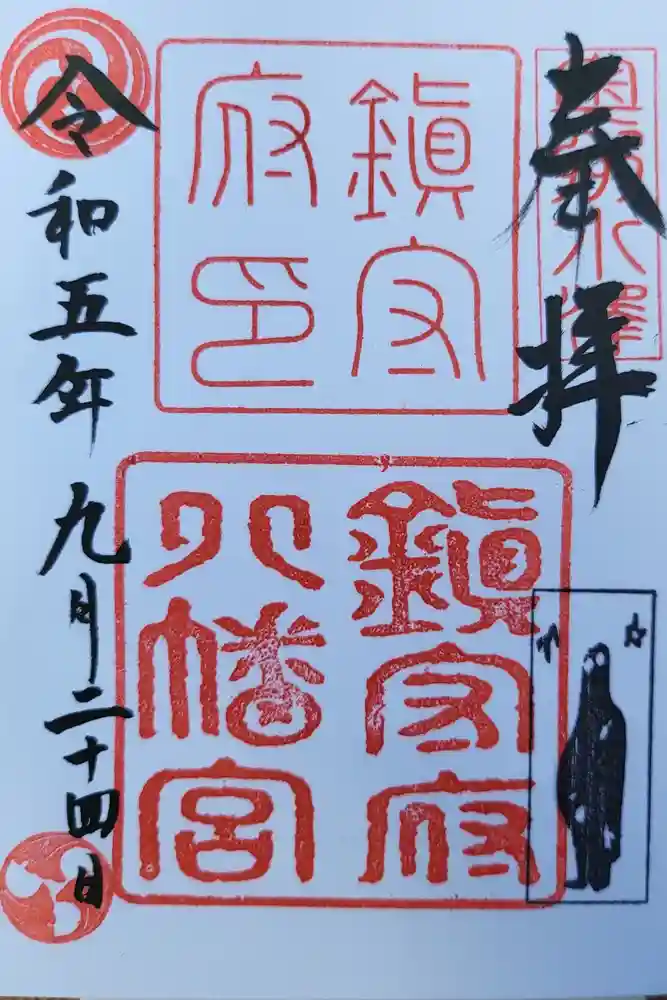 奉拝
鎮守
府印
鎮守府
八幡宮
令和五年九月二十四日